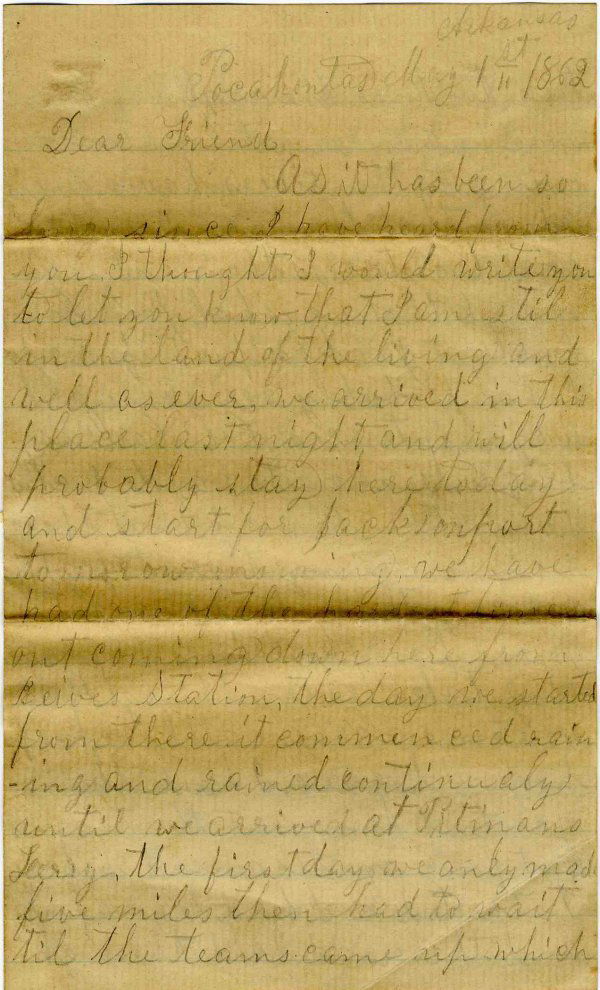 Arkansas
Pocahontas May 1st 1862
Dear Friend
As it has been so
long since I have heard from
you I thought I would write you
to let you know that I am stil
in the land of the living and
well as ever, we arrived in this
place last night and will
probably stay here today
and start for Jacksonport
tomorow morning, we have
had one of the hardest times
out coming down here from
Reives Station, the day we started
from there it commenced rain
-ing and rained continualy
until we arrived at Pitmans
Ferry, the first day we only made
five miles then had to wait
til the teams came up which